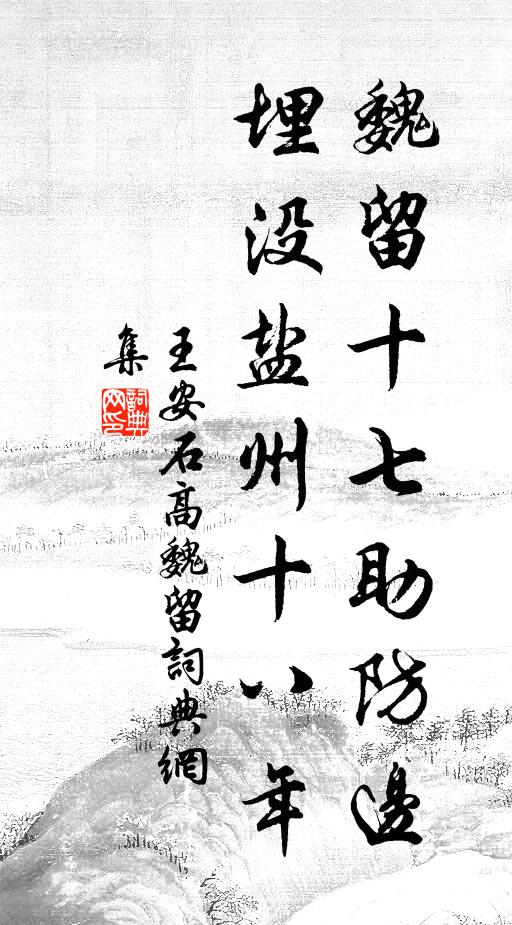 魏留十七助防邊
埋没盐州十八年
王安石高魏留詞典網
集
詞典網印